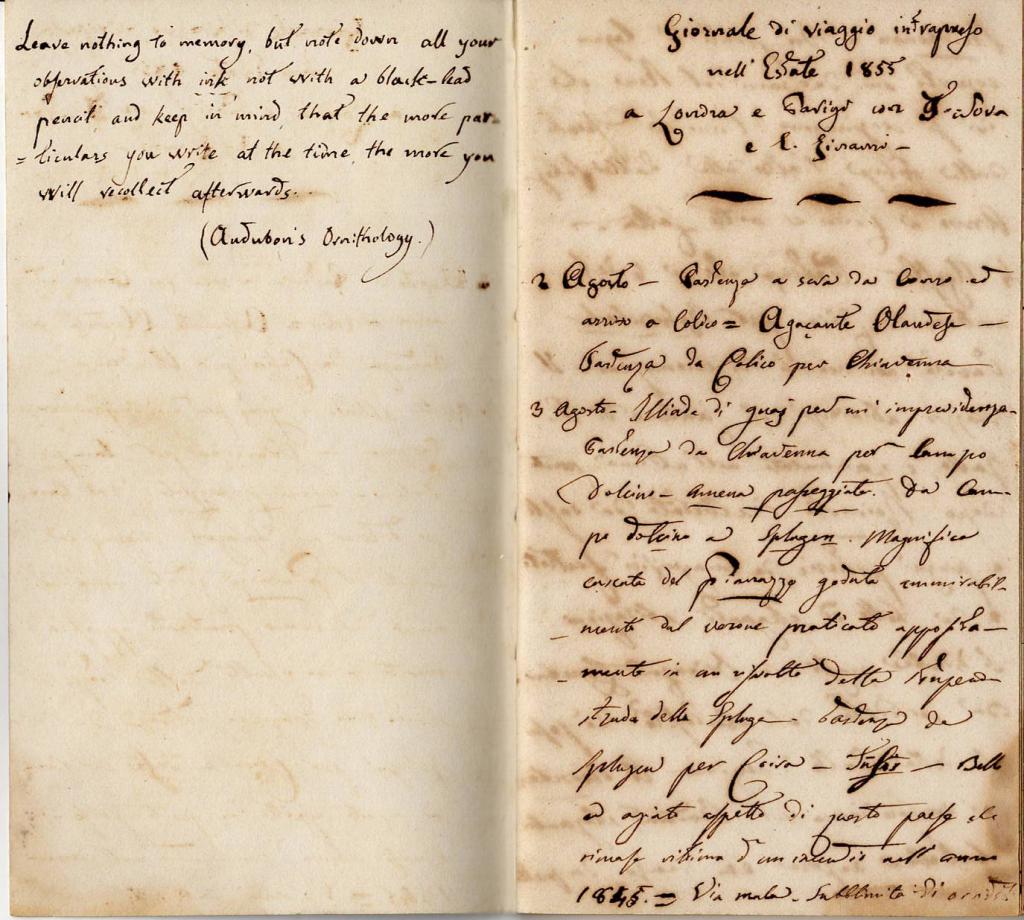 Leave nothing to memory, but note down all your
observations with ink not with a black-lead
pencil, and keep in mind, that the more par-
=ticulars you write at the time, the more you
will recollect afterwards.
(Audubon's Ornithology.)
Giornale di viaggio intrapreso
nell' Estate 1855
a Londra e Parigi con
e
2 Agosto – Partenza a sera da Como ed
arrivo a Colico = Agaçante Olandese –
Partenza da Colico per Chiavenna
3 Agosto – Illiade di guaj per un' imprevidenza –
Partenza da Chiavenna per Campo
Dolcino – amena passeggiata. Da Cam-
po dolcino a Splugen. Magnifica
cascata del Pianazzo goduta ammirabil-
-mente dal verone praticato apposita-
-mente in un risvolto della stupenda
strada dello Spluga – Partenza da
Splugen per Coira – Tusis – Bello
ed agiato aspetto di questo paese che
rimase vittima d'un incendio nell' anno
1845. = Via mala – Sublimità di